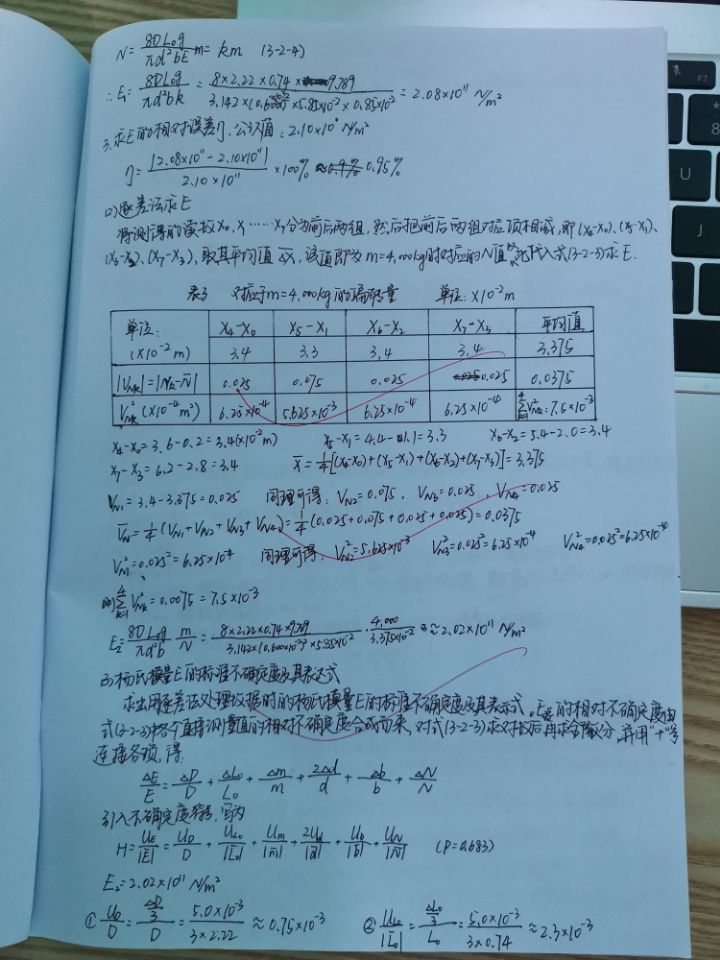 N = 8DL₀g/πd²bE m = km (3-2-4)
∴ E₁ = 8DL₀g/πd²bk = 8×2.22×0.74×9.789/3.142×(0.600×10⁻³)²×5.85×10⁻²×0.85×10⁻² = 2.08×10¹¹ N/m²
3.求E的相对误差η,公认值:2.10×10¹¹ N/m²
η = |2.08×10¹¹ - 2.10×10¹¹|/2.10×10¹¹ ×100% ≈ 0.95%
(2)逐差法求E
将测得的读数X₀、X₁……X₇分为前后两组,然后把前后两组对应项相减,即(X₄-X₀)、(X₅-X₁)、
(X₆-X₂)、(X₇-X₃),取其平均值 X̄,该值即为m=4.000kg时对应的N值,把N代入式(3-2-3)求E.
表3 对应于m=4.000kg的偏转量 单位:×10⁻²m
单位:(×10⁻²m) X₄-X₀ X₅-X₁ X₆-X₂ X₇-X₃ 平均值
3.4 3.3 3.4 3.4 3.375
|V_Nk|=|N_k-N̄| 0.025 0.075 0.025 0.025 0.0375
V²_Nk(×10⁻⁴m²) 6.25×10⁻⁴ 5.625×10⁻³ 6.25×10⁻⁴ 6.25×10⁻⁴ ΣV²_Nk=7.5×10⁻³
X₄-X₀=3.6-0.2=3.4(×10⁻²m) X₅-X₁=4.4-1.1=3.3 X₆-X₂=5.4-2.0=3.4
X₇-X₃=6.2-2.8=3.4 X̄=¼[(X₄-X₀)+(X₅-X₁)+(X₆-X₂)+(X₇-X₃)]=3.375
V_N1=3.4-3.375=0.025 同理可得:V_N2=0.075,V_N3=0.025,V_N4=0.025
V̄_N=¼(V_N1+V_N2+V_N3+V_N4)=¼(0.025+0.075+0.025+0.025)=0.0375
V²_N1=0.025²=6.25×10⁻⁴ 同理可得:V²_N2=5.625×10⁻³ V²_N3=0.025²=6.25×10⁻⁴ V²_N4=0.025²=6.25×10⁻⁴
则ΣV²_Nk=0.0075=7.5×10⁻³
E₂=8DL₀g/πd²b · m/N = 8×2.22×0.74×9.789/3.142×(0.600×10⁻³)²×5.85×10⁻² · 4.000/3.375×10⁻² ≈ 2.02×10¹¹ N/m²
(3)杨氏模量E的标准不确定度及其表达式
求出用逐差法处理数据时的杨氏模量E的标准不确定度及其表示式。E的相对不确定度由
式(3-2-3)中各个直接测量值的相对不确定度合成而来,对式(3-2-3)求对数后再求全微分,并用"+"号
连接各项,得:
ΔE/E = ΔD/D + ΔL₀/L₀ + Δm/m + 2Δd/d + Δb/b + ΔN/N
引入不确定度符号,写为
H = U_E/|Ē| = U_D/D + U_L₀/|L̄₀| + U_m/|m̄| + 2U_d/|d̄| + U_b/|b̄| + U_N/|N̄| (P=0.683)
E₂=2.02×10¹¹ N/m²
① U_D/D = (ΔD/3)/D = 5.0×10⁻³/3×2.22 ≈ 0.75×10⁻³ ② U_L₀/|L̄₀| = (ΔL₀/3)/L₀ = 5.0×10⁻³/3×0.74 ≈ 2.3×10⁻³
F7
8
U
J